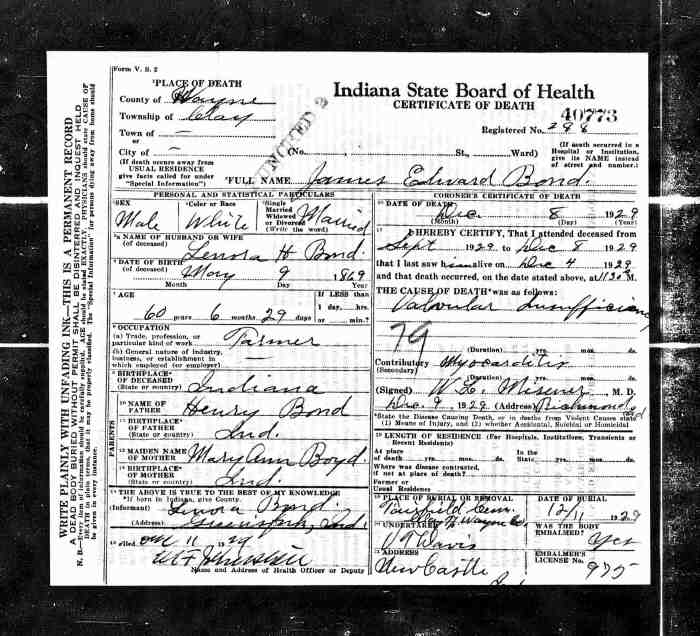 Form V. S. 2
Indiana State Board of Health
CERTIFICATE OF DEATH
40773
Registered No. 298
PLACE OF DEATH
County of Wayne
Township of Clay
Town of —
or
City of —
(No. St., Ward)
(If death occurred in a Hospital or Institution, give its NAME instead of street and number.)
(If death occurs away from USUAL RESIDENCE give facts called for under "Special Information")
FULL NAME James Edward Bond.
PERSONAL AND STATISTICAL PARTICULARS
SEX Male
Color or Race White
Single Married Widowed or Divorced (Write the word) Married
NAME OF HUSBAND OR WIFE (of deceased) Lenora H Bond.
DATE OF BIRTH (of deceased) May 9 1869
Month Day Year
AGE
60 years 6 months 29 days
IF LESS than 1 day, hrs. or min.?
OCCUPATION
(a) Trade, profession, or particular kind of work Farmer
(b) General nature of industry, business, or establishment in which employed (or employer) —
BIRTHPLACE OF DECEASED (State or country) Indiana
NAME OF FATHER Henry Bond
BIRTHPLACE OF FATHER (State or country) Ind.
MAIDEN NAME OF MOTHER Mary Ann Boyd.
BIRTHPLACE OF MOTHER (State or country) Ind.
PARENTS
THE ABOVE IS TRUE TO THE BEST OF MY KNOWLEDGE
*If born in Indiana, give County.
(Informant) Lenora Bond.
(Address) Greensfork, Ind.
Filed 11 1929
Name and Address of Health Officer or Deputy
CORONER'S CERTIFICATE OF DEATH
DATE OF DEATH Dec. 8 1929
(Month) (Day) (Year)
I HEREBY CERTIFY, That I attended deceased from
Sept 1929 to Dec 8 1929
that I last saw him alive on Dec 4 1929
and that death occurred, on the date stated above, at M.
THE CAUSE OF DEATH* was as follows:
Valvular Insufficiency
79
(Duration) yrs. mos. ds.
Contributory (Secondary) Myocarditis
(Duration) yrs. mos. ds.
(Signed) W. E. Misener M. D.
Dec. 9 1929 (Address) Richmond Ind
*State the Disease Causing Death, or in deaths from Violent Causes state (1) Means of Injury, and (2) whether Accidental, Suicidal or Homicidal
LENGTH OF RESIDENCE (For Hospitals, Institutions, Transients or Recent Residents)
At place of death yrs. mos. ds. In the State, yrs. mos. ds.
Where was disease contracted, if not at place of death?
Former or Usual Residence
PLACE OF BURIAL OR REMOVAL Fairfield Cem. Wayne Co.
DATE OF BURIAL 12/11 1929
UNDERTAKER V T Davis
WAS THE BODY EMBALMED? Yes
ADDRESS New Castle
EMBALMER'S LICENSE No. 975
WRITE PLAINLY WITH UNFADING INK—THIS IS A PERMANENT RECORD
A DEAD BODY BURIED WITHOUT PERMIT SHALL BE DISINTERRED AND INQUEST HELD
N. B.—Every item of information should be carefully supplied. AGE should be stated EXACTLY. PHYSICIANS should state CAUSE OF DEATH in plain terms, that it may be properly classified. The "Special Information" for persons dying away from home should be given in every instance.